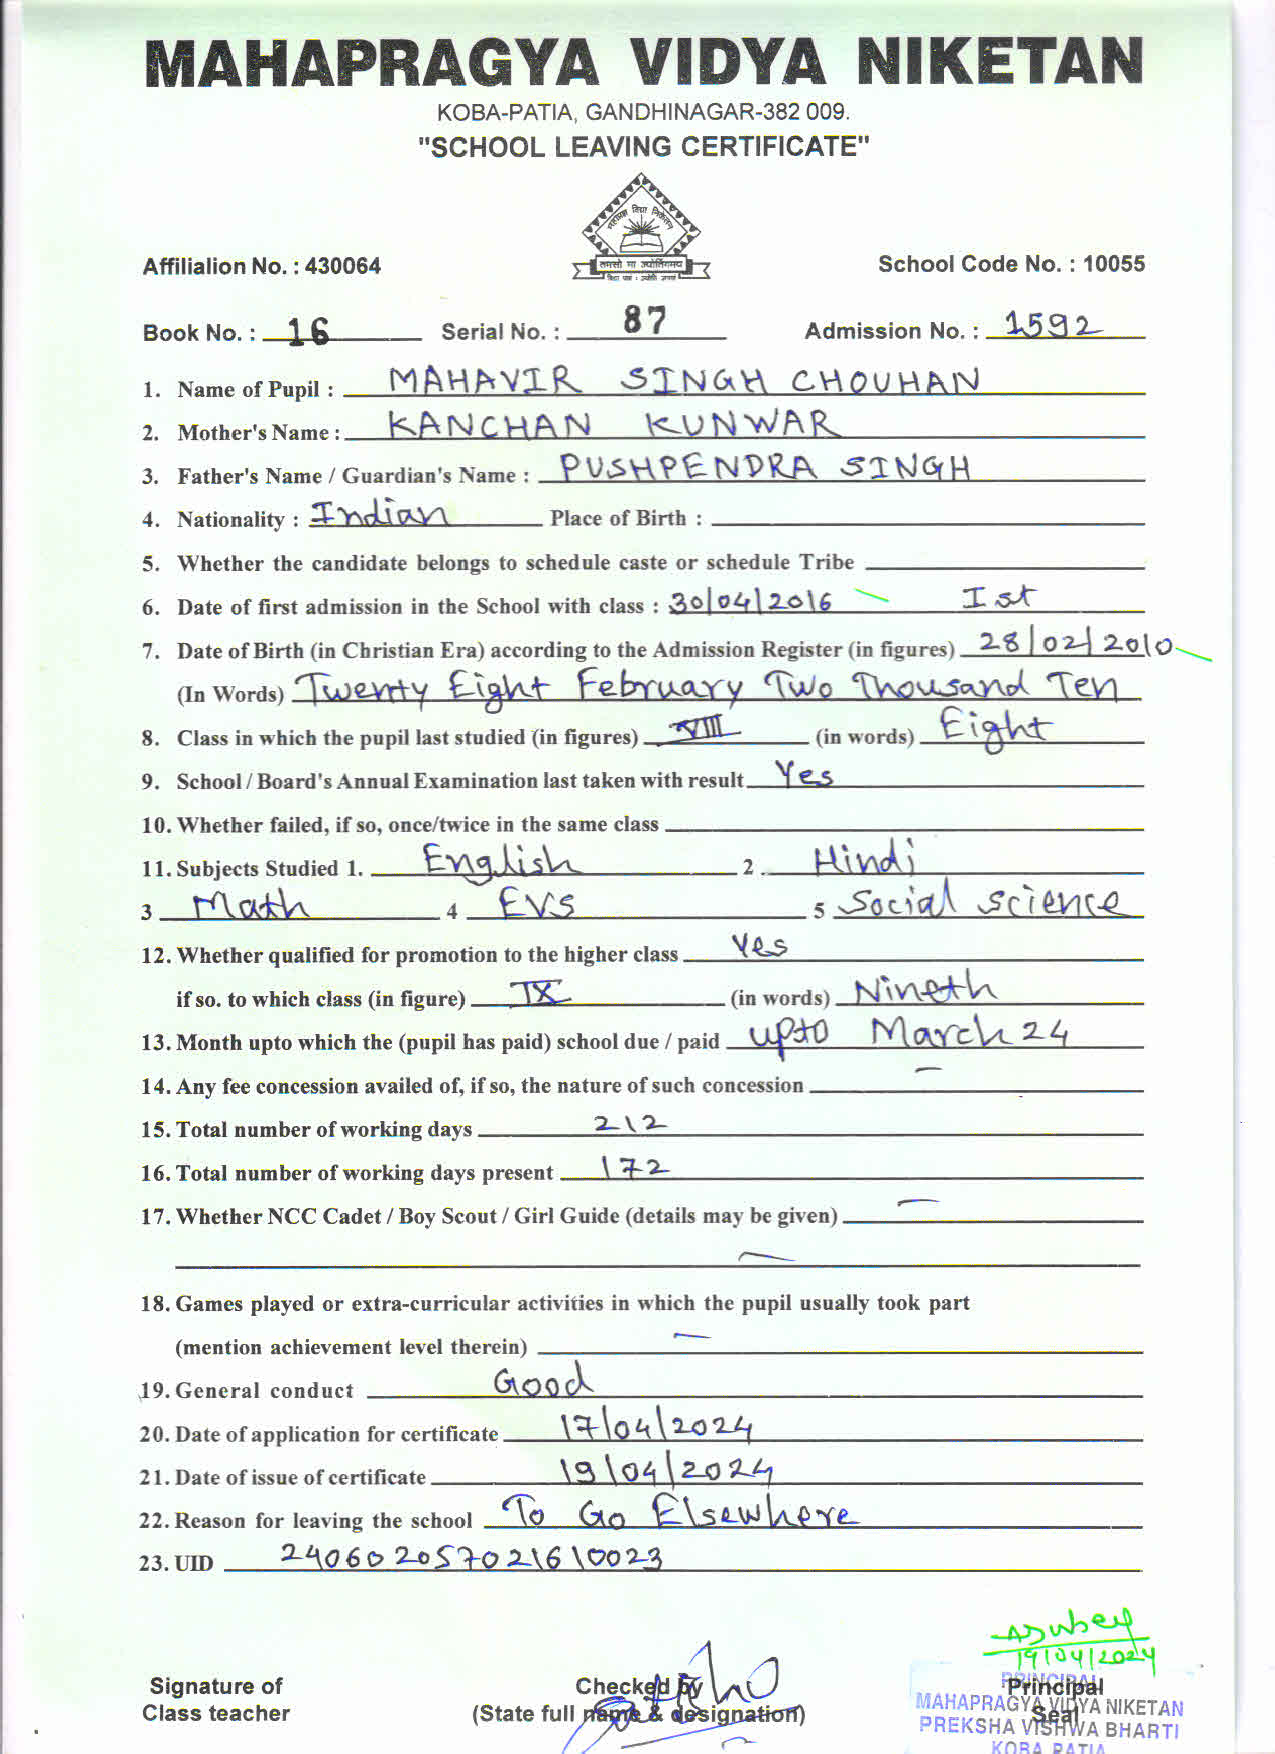 MAHAPRAGYA VIDYA NIKETAN
KOBA-PATIA, GANDHINAGAR-382 009.
"SCHOOL LEAVING CERTIFICATE"
महाप्रज्ञ विद्या निकेतन
तमसो मा ज्योतिर्गमय
Affilialion No. : 430064 School Code No. : 10055
Book No. : 16 Serial No. : 87 Admission No. : 1592
1. Name of Pupil : MAHAVIR SINGH CHOUHAN
2. Mother's Name : KANCHAN KUNWAR
3. Father's Name / Guardian's Name : PUSHPENDRA SINGH
4. Nationality : Indian Place of Birth :
5. Whether the candidate belongs to schedule caste or schedule Tribe
6. Date of first admission in the School with class : 30/04/2016 Ist
7. Date of Birth (in Christian Era) according to the Admission Register (in figures) 28/02/2010
(In Words) Twenty Eight February Two Thousand Ten
8. Class in which the pupil last studied (in figures) VIII (in words) Eight
9. School / Board's Annual Examination last taken with result Yes
10. Whether failed, if so, once/twice in the same class
11. Subjects Studied 1. English 2. Hindi
3 Math 4 EVS 5 Social Science
12. Whether qualified for promotion to the higher class Yes
if so. to which class (in figure) IX (in words) Nineth
13. Month upto which the (pupil has paid) school due / paid upto March 24
14. Any fee concession availed of, if so, the nature of such concession —
15. Total number of working days 212
16. Total number of working days present 172
17. Whether NCC Cadet / Boy Scout / Girl Guide (details may be given) —
—
18. Games played or extra-curricular activities in which the pupil usually took part
(mention achievement level therein) —
19. General conduct Good
20. Date of application for certificate 17/04/2024
21. Date of issue of certificate 19/04/2024
22. Reason for leaving the school To Go Elsewhere
23. UID 240602057021610023
19/04/2024
Signature of Checked by Principal
Class teacher (State full name & designation) Seal
PRINCIPAL
MAHAPRAGYA VIDYA NIKETAN
PREKSHA VISHWA BHARTI
KOBA PATIA